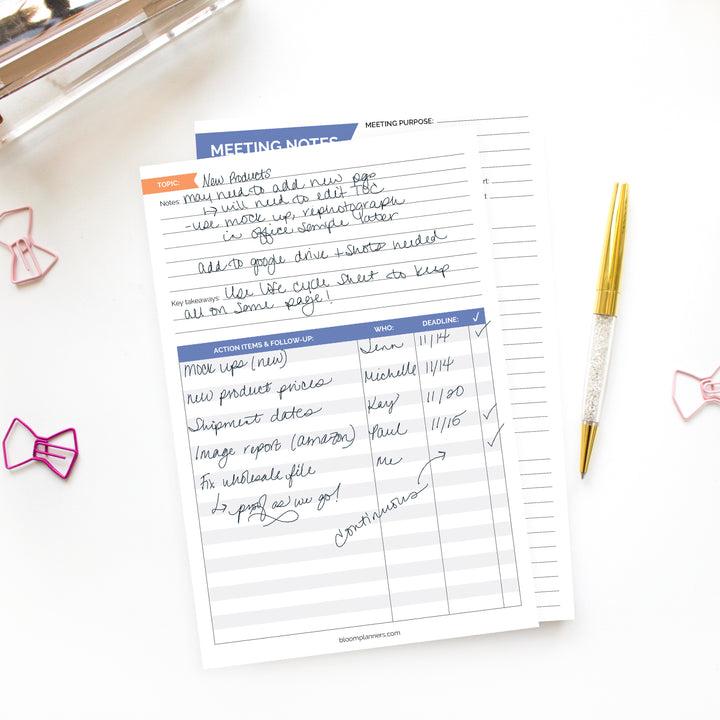 MEETING NOTES
MEETING PURPOSE:
TOPIC: New Products
Notes: may need to add new pgs
↳ will need to edit TOC
-use mock up, rephotograph
in office sample later
add to google drive + shots needed
Key takeaways: Use life cycle sheet to keep
all on same page!
ACTION ITEMS & FOLLOW-UP: WHO: DEADLINE: ✓
mock ups (new) Jenn 11/14 ✓
new product prices Michelle 11/14
Shipment dates Kay 11/20
Image report (amazon) Paul 11/15 ✓
Fix wholesale file Me ✓
↳ proof as we go!
continuous
bloomplanners.com